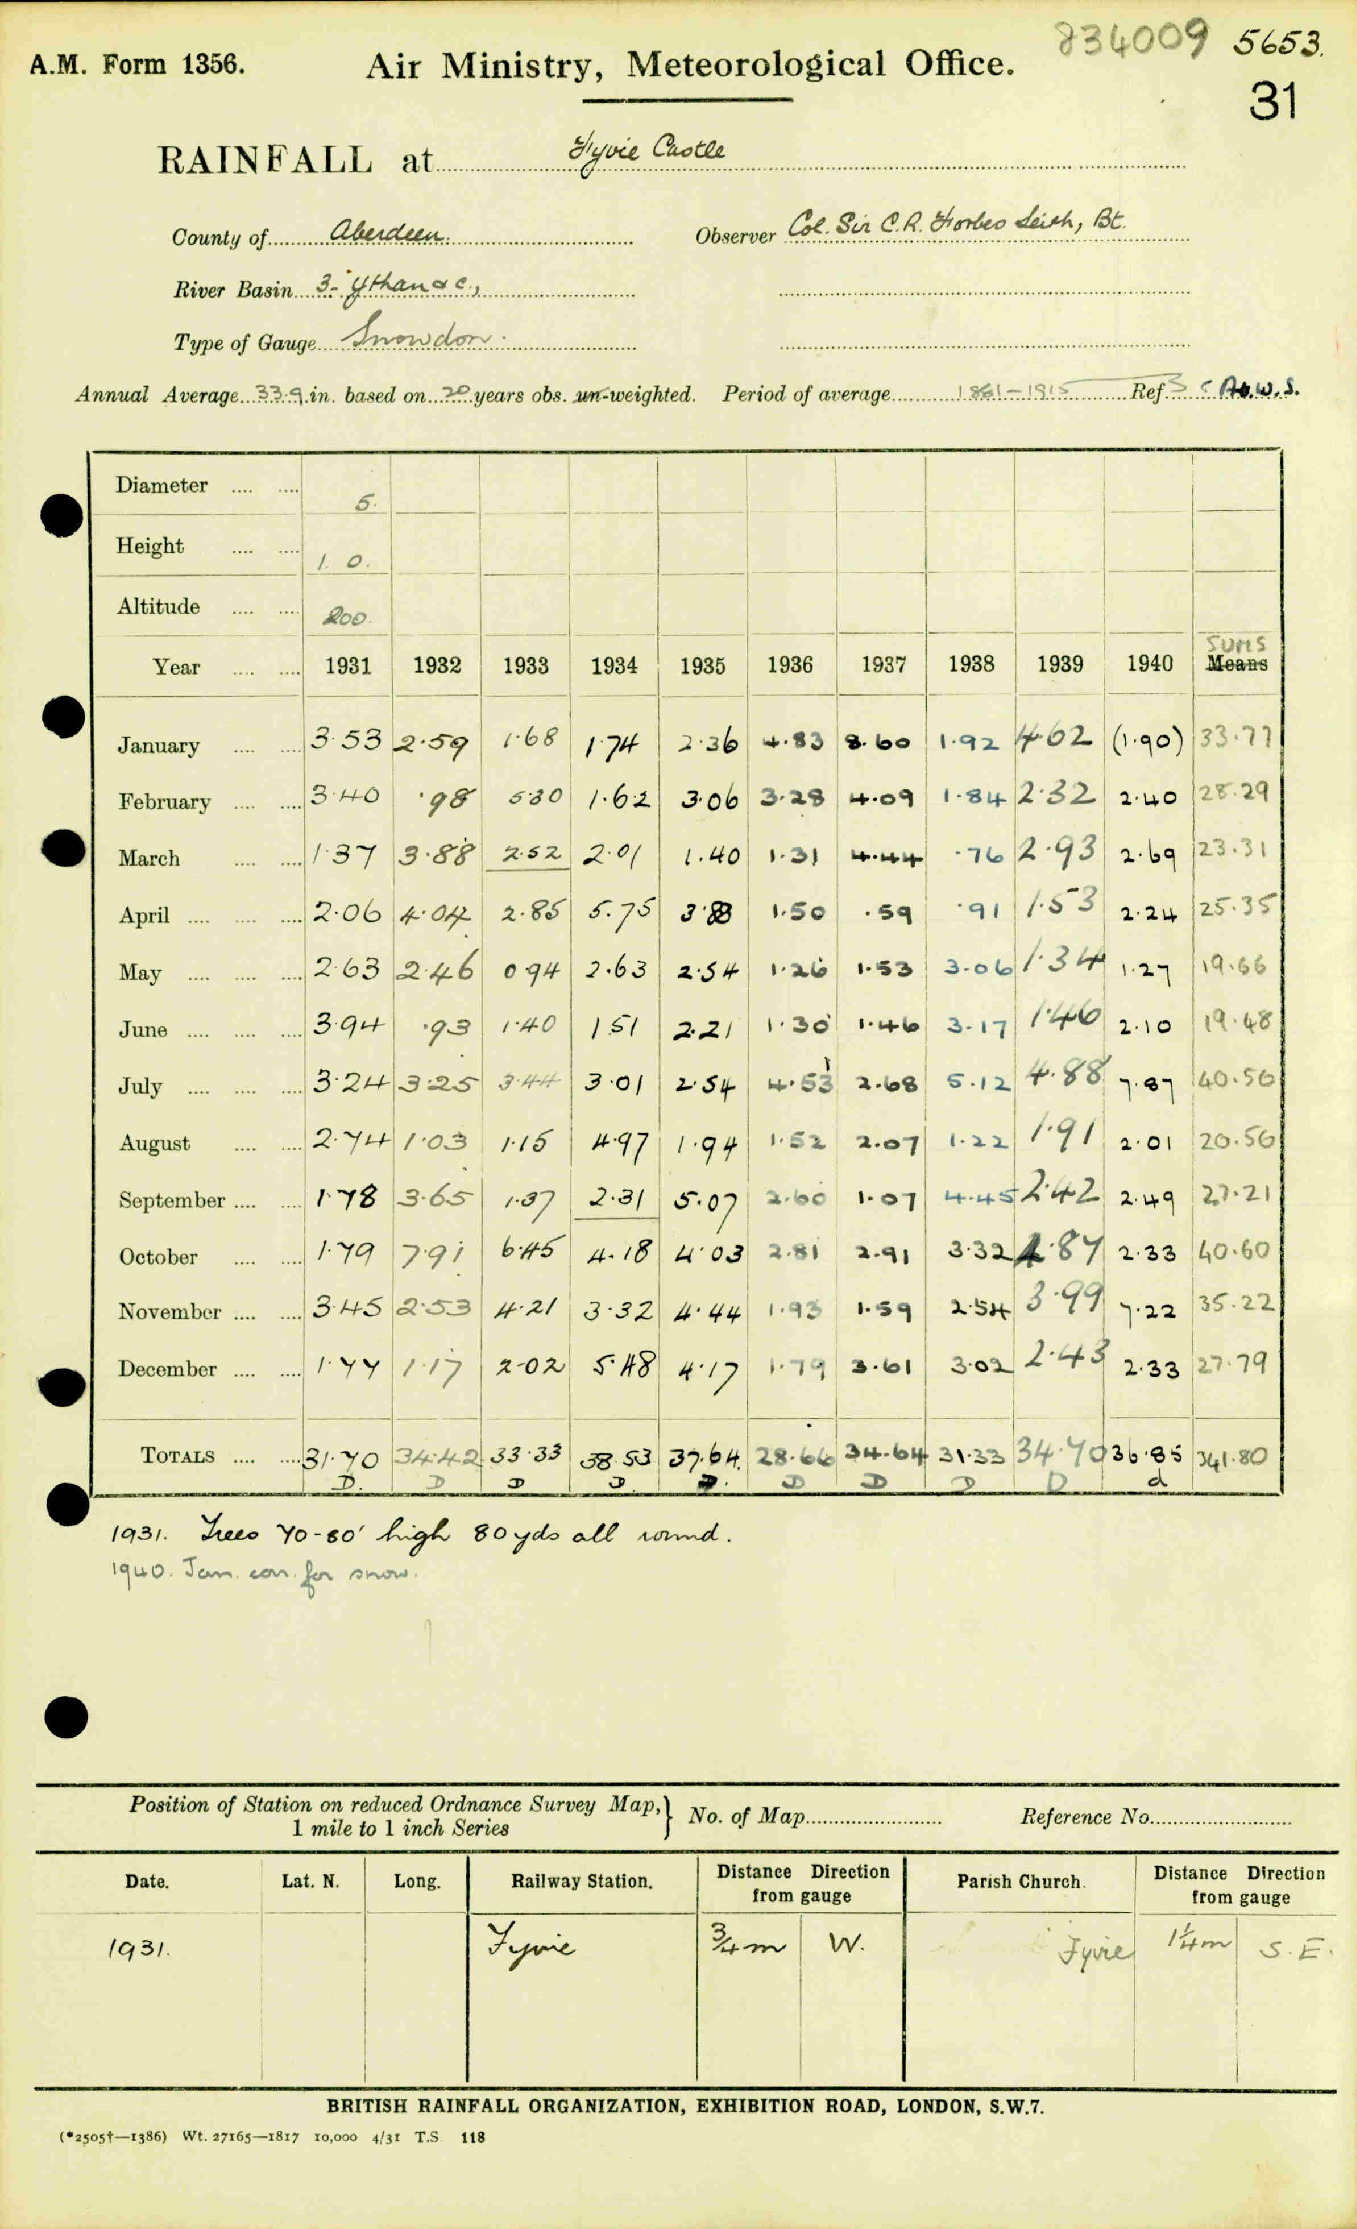 834009 5653.
A.M. Form 1356. Air Ministry, Meteorological Office.
31
RAINFALL at Fyvie Castle
County of Aberdeen. Observer Col. Sir C.R. Forbes Leith, Bt.
River Basin 3- Ythan & c.,
Type of Gauge Snowdon.
Annual Average 33.9 in. based on 20 years obs. un-weighted. Period of average 1881-1915 Ref
Diameter .... .... 5.
Height .... .... 1. 0.
Altitude .... .... 200
SUMS
Year .... .... 1931 1932 1933 1934 1935 1936 1937 1938 1939 1940 Means
January .... .... 3.53 2.59 1.68 1.74 2.36 4.83 8.60 1.92 4.62 (1.90) 33.77
February .... .... 3.40 .98 5.30 1.62 3.06 3.28 4.09 1.84 2.32 2.40 28.29
March .... .... 1.37 3.88 2.52 2.01 1.40 1.31 4.44 .76 2.93 2.69 23.31
April .... .... .... 2.06 4.04 2.85 5.75 3.88 1.50 .59 .91 1.53 2.24 25.35
May .... .... .... 2.63 2.46 0.94 2.63 2.54 1.26 1.53 3.06 1.34 1.27 19.66
June .... .... .... 3.94 .93 1.40 1.51 2.21 1.30 1.46 3.17 1.46 2.10 19.48
July .... .... .... 3.24 3.25 3.44 3.01 2.54 4.53 2.68 5.12 4.88 7.87 40.56
August .... .... 2.74 1.03 1.15 4.97 1.94 1.52 2.07 1.22 1.91 2.01 20.56
September .... .... 1.78 3.65 1.37 2.31 5.07 2.60 1.07 4.45 2.42 2.49 27.21
October .... .... 1.79 7.91 6.45 4.18 4.03 2.81 2.91 3.32 4.87 2.33 40.60
November .... .... 3.45 2.53 4.21 3.32 4.44 1.93 1.59 2.54 3.99 7.22 35.22
December .... .... 1.77 1.17 2.02 5.48 4.17 1.79 3.61 3.02 2.43 2.33 27.79
TOTALS .... .... 31.70 34.42 33.33 38.53 37.64 28.66 34.64 31.33 34.70 36.85 341.80
D. D D D. D. D D D D d
1931. Trees 70-80' high 80 yds all round.
1940. Jan. corr. for snow.
Position of Station on reduced Ordnance Survey Map, } No. of Map Reference No.
1 mile to 1 inch Series
Date. Lat. N. Long. Railway Station. Distance Direction from gauge Parish Church. Distance Direction from gauge
1931. Fyvie 3/4 m W. Fyvie 1 1/4 m S.E.
BRITISH RAINFALL ORGANIZATION, EXHIBITION ROAD, LONDON, S.W.7.
(*2505†—1386) Wt. 27165—1817 10,000 4/31 T.S. 118